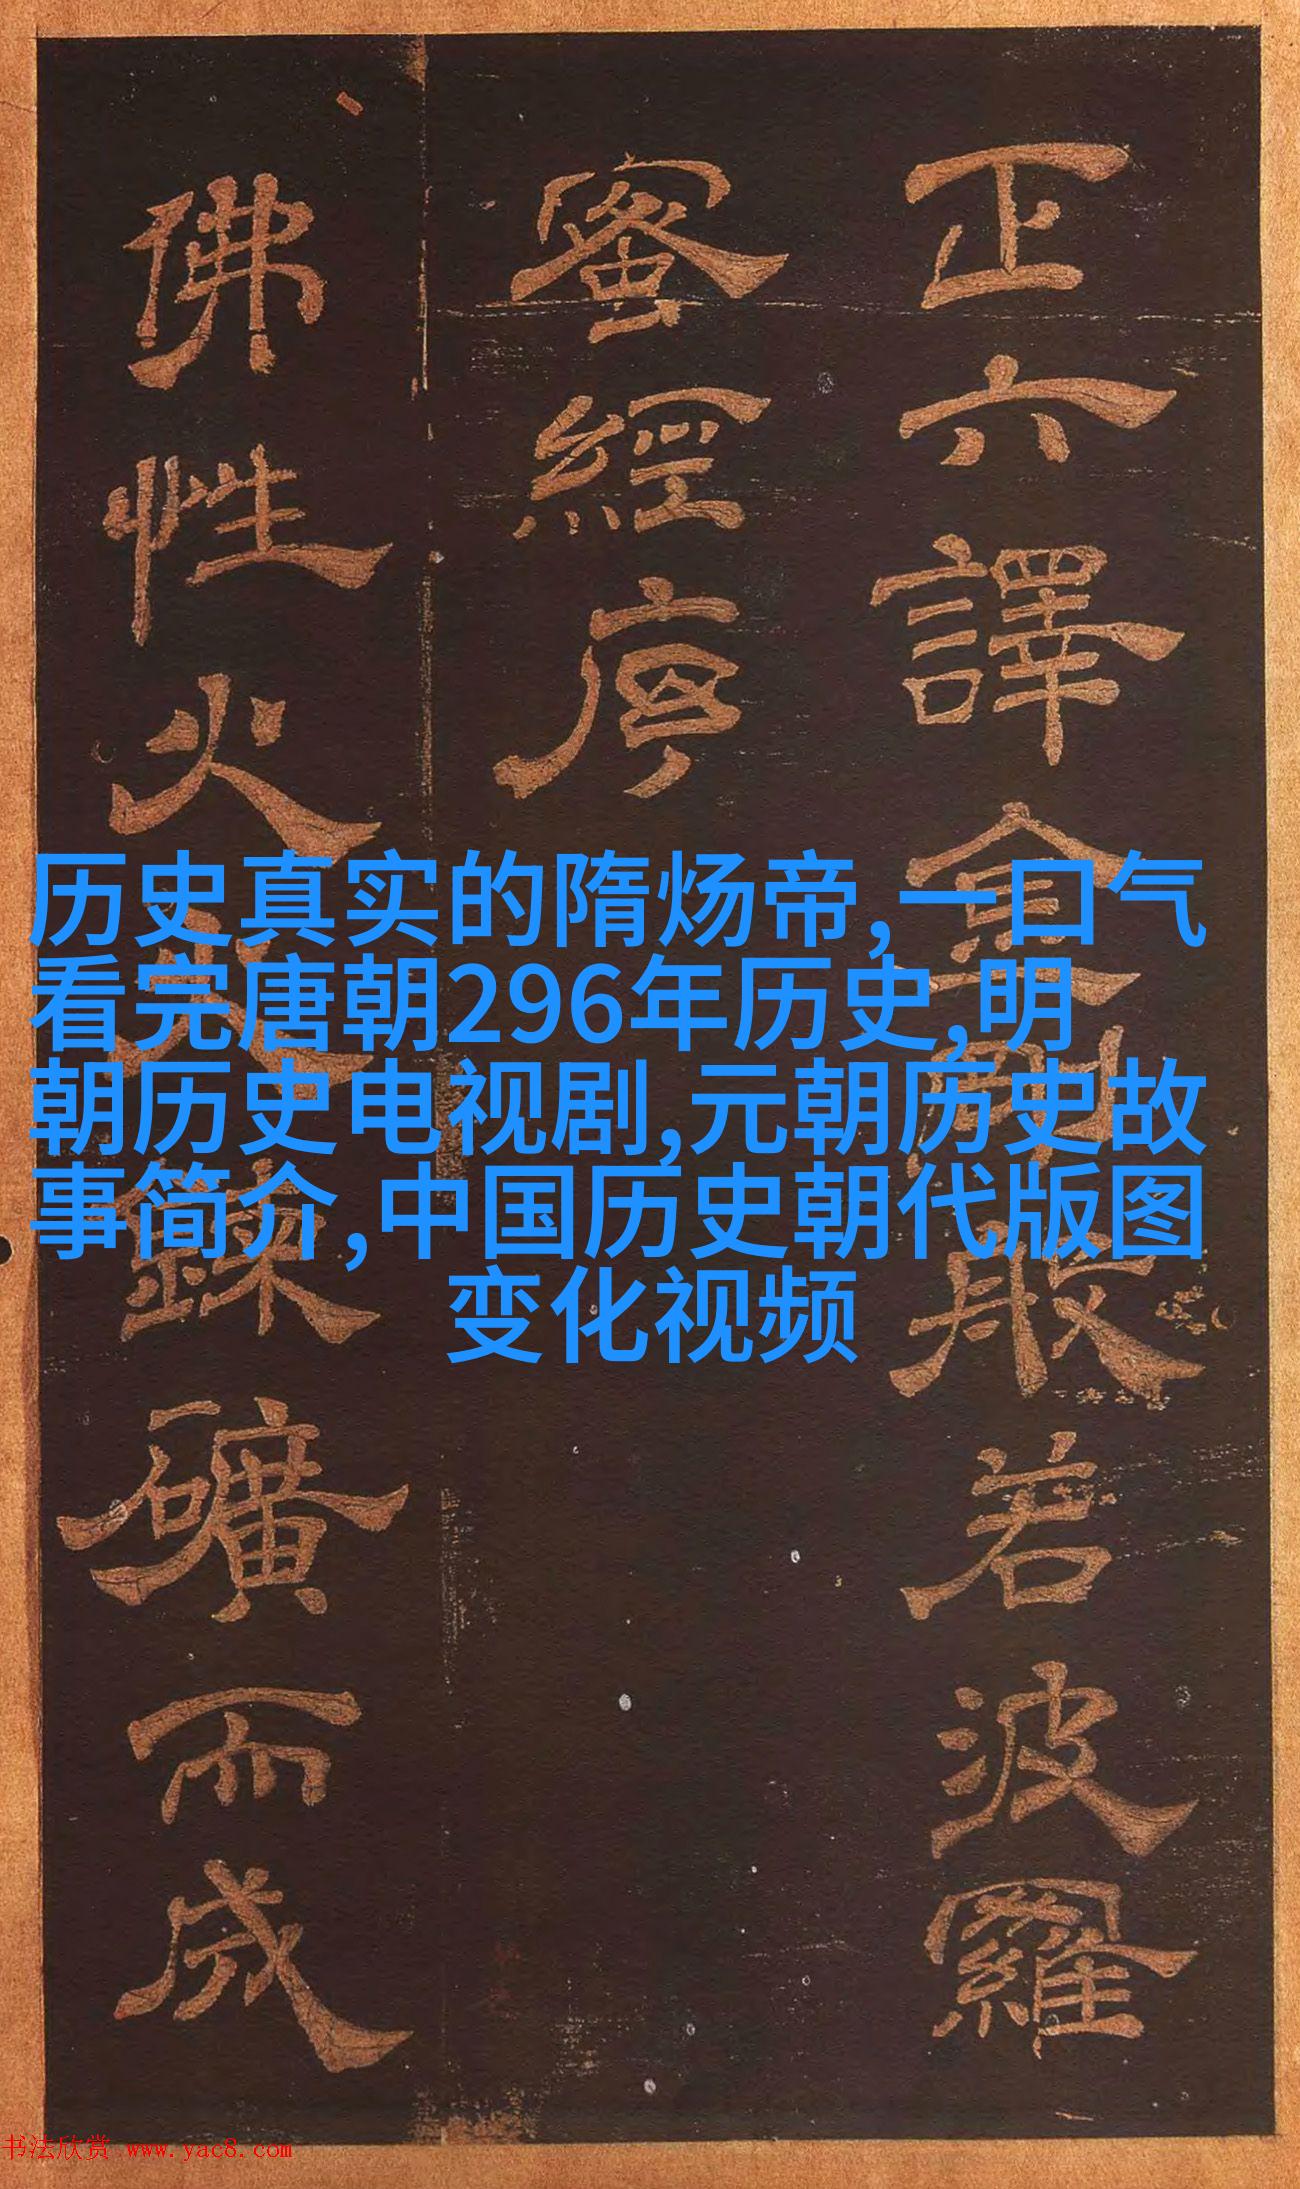 正六譯金剛般若波羅
蜜經序
佛性火鍊礦而成
历史真实的隋炀帝,一口气
看完唐朝296年历史,明
朝历史电视剧,元朝历史故
事简介,中国历史朝代版图
变化视频
书法欣赏 www.yac8.com